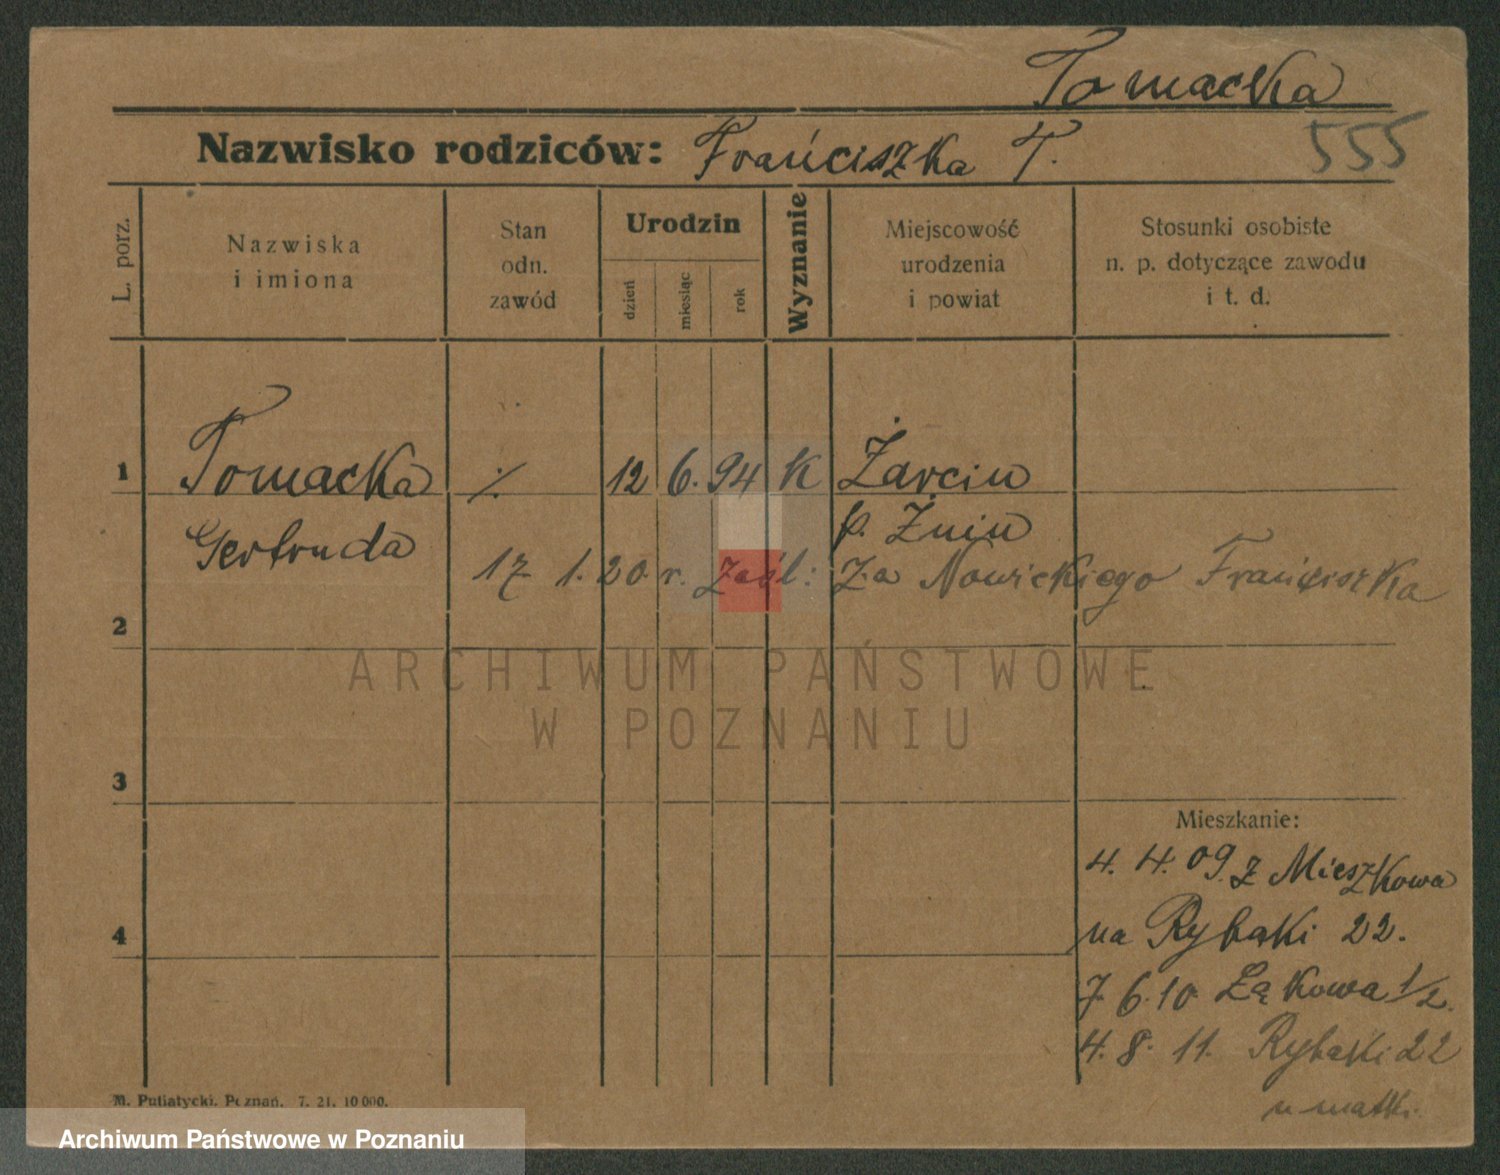 Tomacka
Nazwisko rodziców: Frańciszka T. 555
L. porz.
Nazwiska i imiona
Stan odn. zawód
Urodzin
dzień
miesiąc
rok
Wyznanie
Miejscowość urodzenia i powiat
Stosunki osobiste n. p. dotyczące zawodu i t. d.
1 Tomacka ⁒ 12 6. 94 K Żarcin
Gertruda p. Żnin
17 1. 20 r. zaśl: za Nowickiego Franciszka
2
ARCHIWUM PAŃSTWOWE
W POZNANIU
3
Mieszkanie:
4. 4. 09. z Mieszkowa
4 na Rybaki 22.
7. 6. 10 Łąkowa 1/2.
4. 8. 11. Rybaki 22
u matki.
M. Putiatycki, Poznań. 7. 21. 10 000.
Archiwum Państwowe w Poznaniu